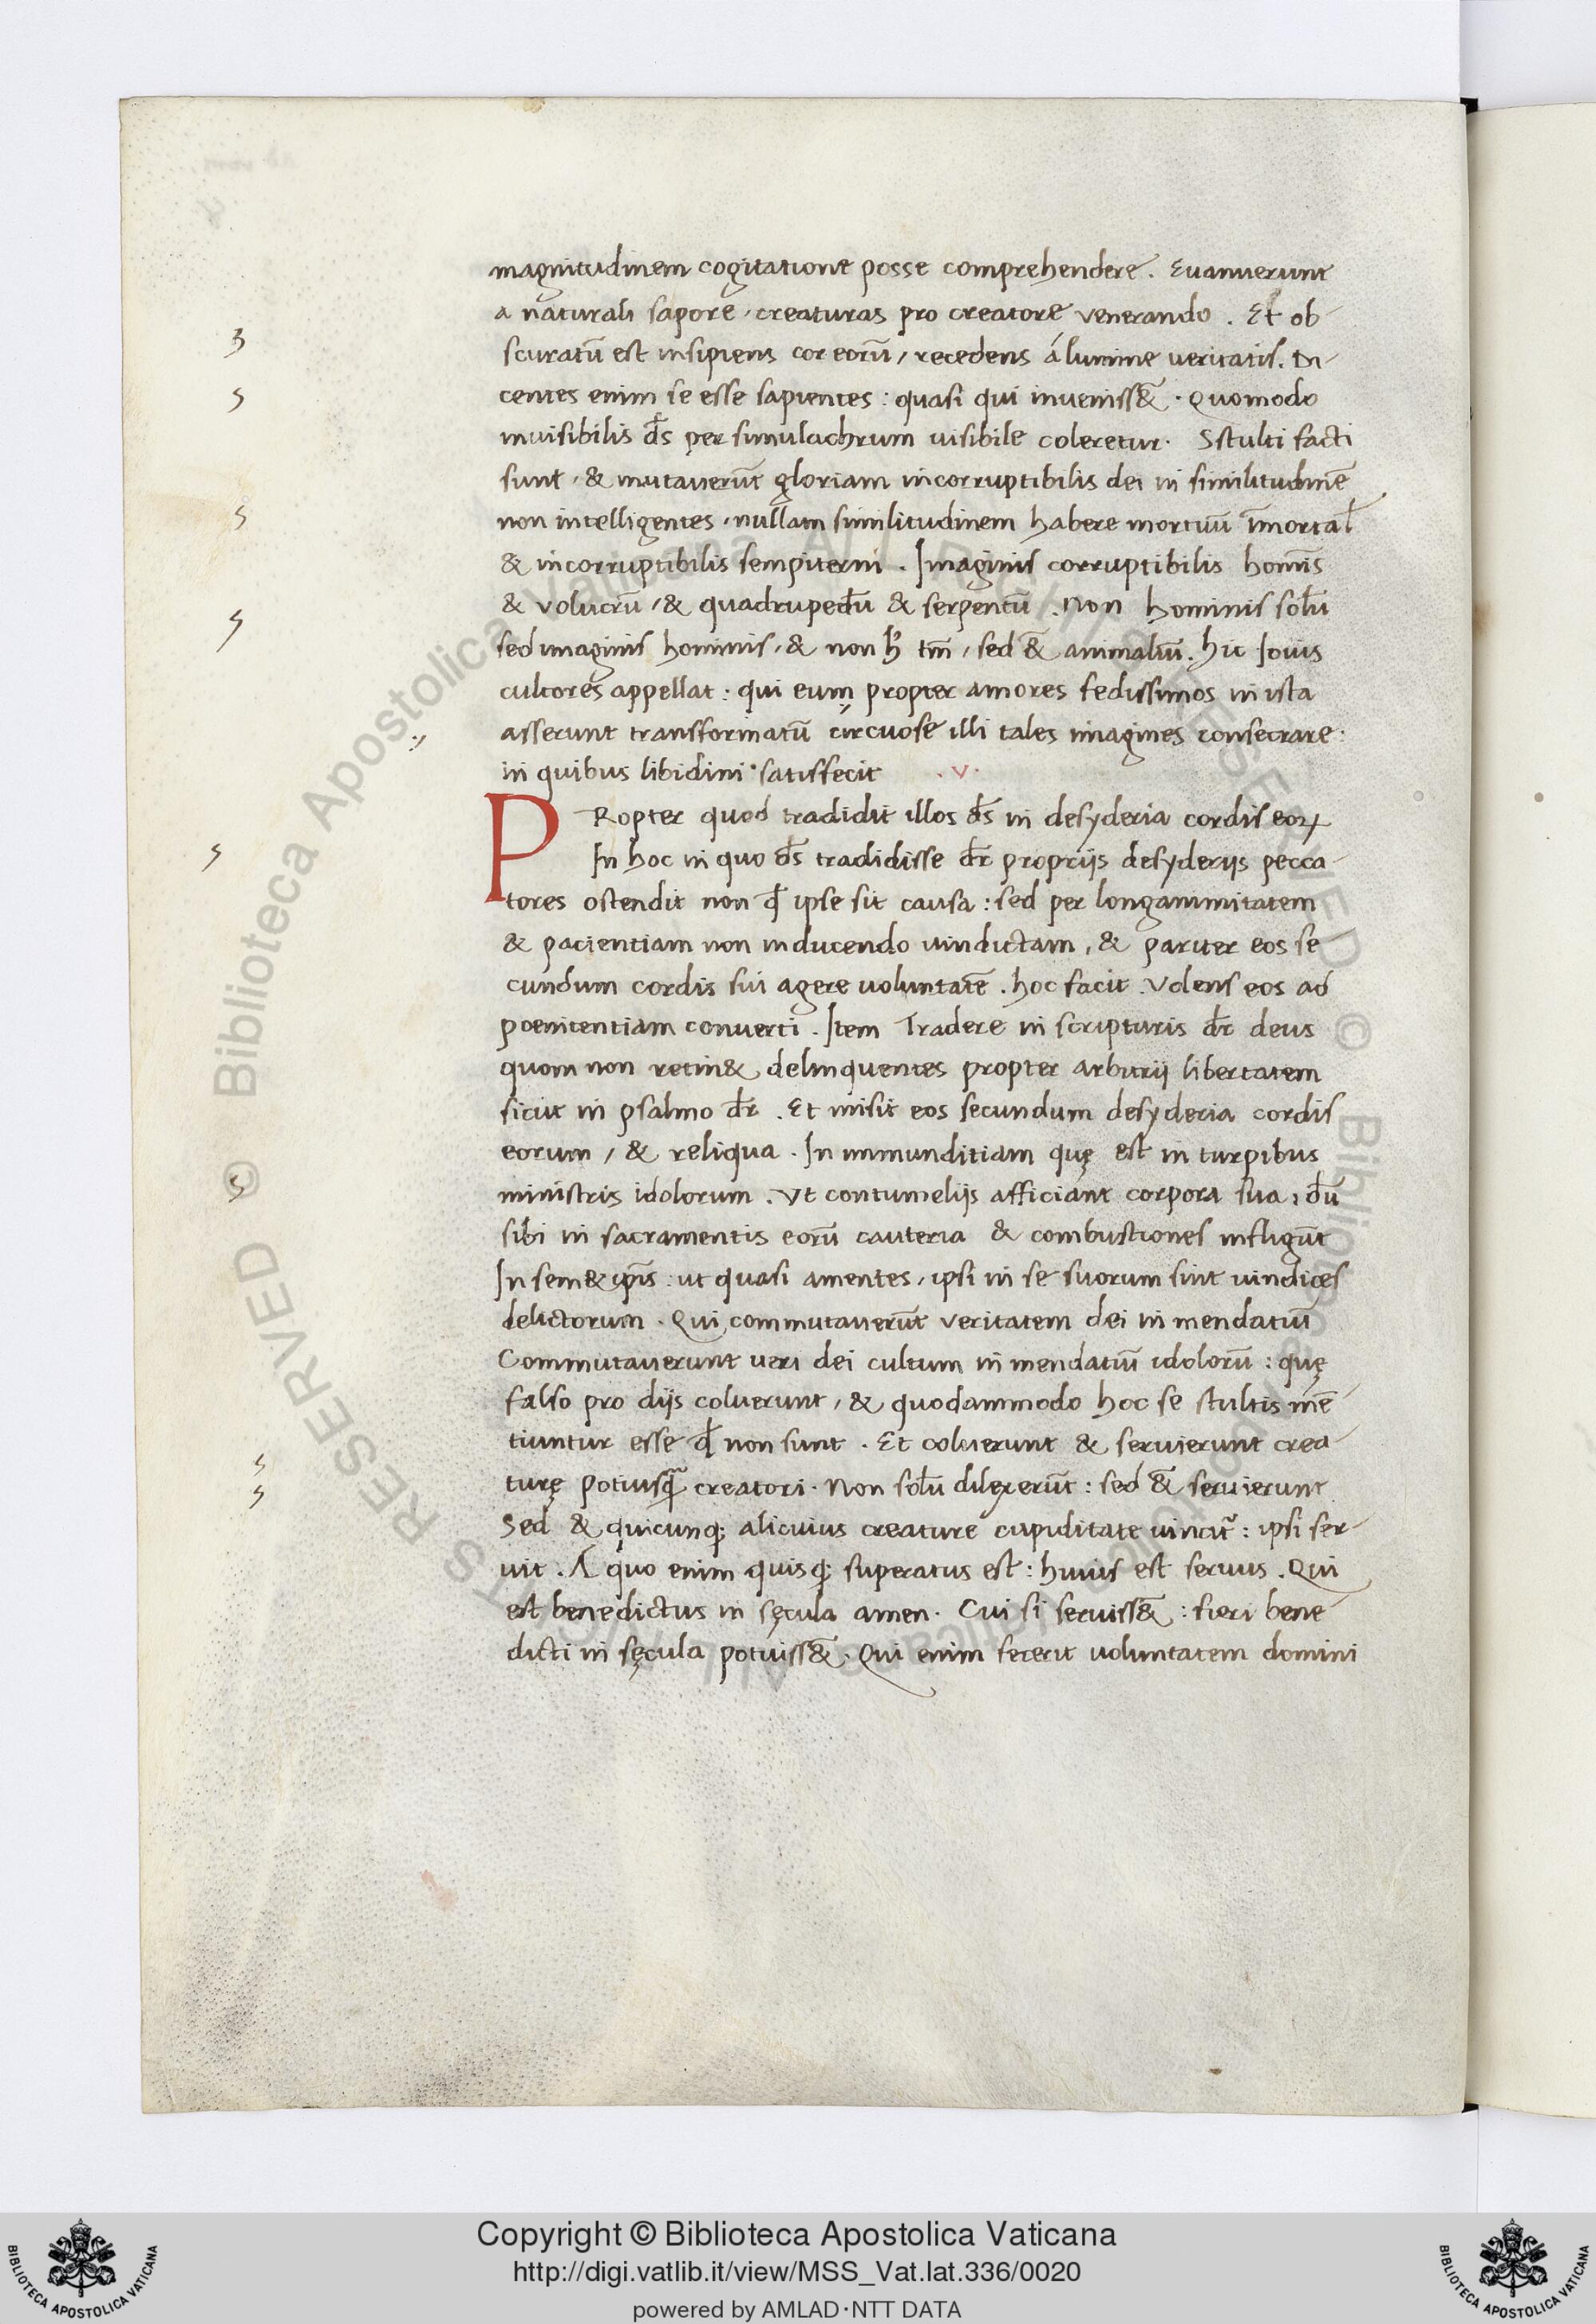 magnitudinem cogitatione posse comprehendere. Euanuerunt
a naturali sapore, creaturas pro creatore venerando. Et ob-
scuratū est insipiens cor eorū, recedens á lumine veritatis. Di-
centes enim se esse sapientes: quasi qui inueniss&̄. Quomodo
inuisibilis d̄s per simulachrum uisibile coleretur. Sstulti facti
sunt, & mutauerūt gloriam incorruptibilis dei in similitudinē
non intelligentes, nullam similitudinem habere mortuū īmortal̄
& incorruptibilis sempiterni. Imaginis corruptibilis homīs
& volucrū, & quadrupedū & serpentū. Non hominis solū
sed imaginis hominis, & non h̄ tm̄, sed &̄ animaliū. hic Iouis
cultores appellat: qui eum propter amores fedissimos in ista
asserunt transformatū circuose illi tales imagines consecrare:
in quibus libidini satisfecit .v.
PRopter quod tradidit illos d̄s in desyderia cordis eoꝝ
In hoc in quo d̄s tradidisse dr̄ propriis desyderijs pecca-
tores ostendit non qd̄ ipse sit causa: sed per longanimitatem
& pacientiam non inducendo uindictam, & pariter eos se-
cundum cordis sui agere uoluntatē. hoc facit. Volens eos ad
poenitentiam conuerti. Item Tradere in scripturis dr̄ deus
quom non retin& delinquentes propter arbitrij libertatem
sicut in psalmo dr̄. Et misit eos secundum desyderia cordis
eorum, & reliqua. In immunditiam quę est in turpibus
ministris idolorum. Vt contumelijs afficiant corpora sua, dū
sibi in sacramentis eorū cauteria & combustiones infligūt
In sem&ip̄is: ut quasi amentes, ipsi in se suorum sint uindices
delictorum. Qui commutauerūt veritatem dei in mendatiū
Commutauerunt ueri dei cultum in mendatiū idolorū: quę
falso pro dijs coluerunt, & quodammodo hoc se stultis mē-
tiuntur esse qd̄ non sunt. Et coluerunt & seruierunt crea-
turę potiusꝗ̄ creatori. Non solū dilexerūt: sed &̄ seruierunt
Sed & quicunq; alicuius creature cupiditate uincit̄: ipsi ser-
uit. A quo enim quisq; superatus est: huius est seruus. Qui
est benedictus in sęcula amen. Cui si seruiss&̄: fieri bene-
dicti in sęcula potuiss&̄. Qui enim fecerit uoluntatem domini
© Biblioteca Apostolica Vaticana ALL RIGHTS RESERVED
Copyright © Biblioteca Apostolica Vaticana
http://digi.vatlib.it/view/MSS_Vat.lat.336/0020
powered by AMLAD·NTT DATA
BIBLIOTECA APOSTOLICA VATICANA
BIBLIOTECA APOSTOLICA VATICANA